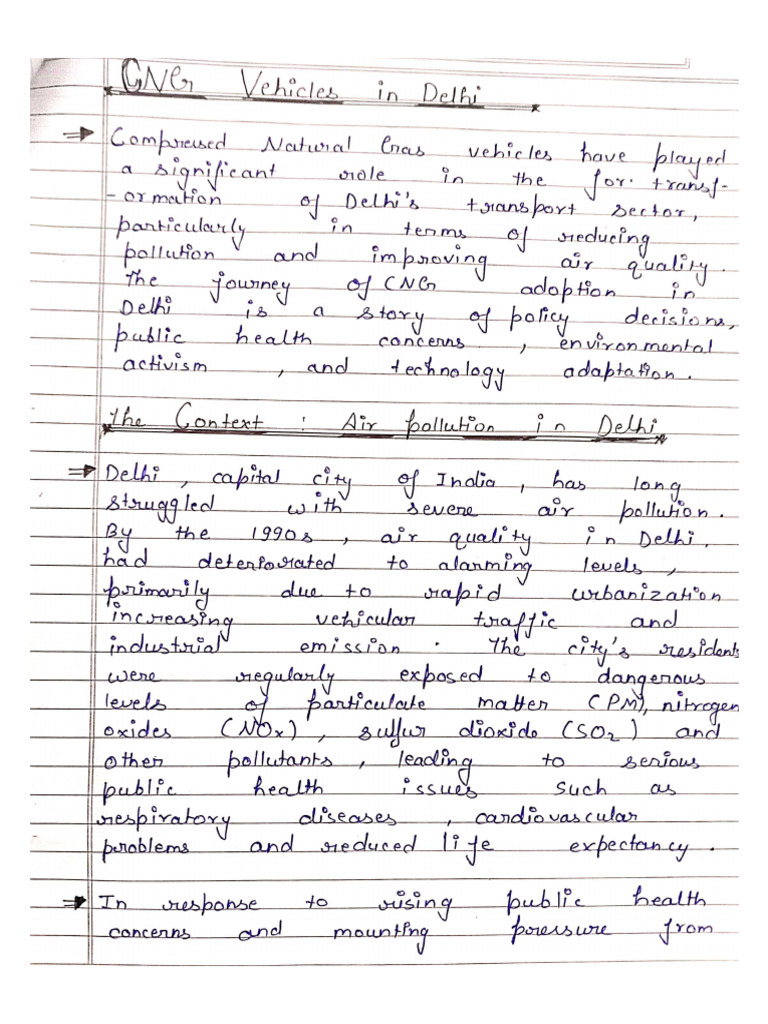 CNG Vehicles in Delhi
⇒ Compressed Natural Gas vehicles have played
a significant role in the for. transf-
-ormation of Delhi's transport sector,
particularly in terms of reducing
pollution and improving air quality.
The journey of CNG adoption in
Delhi is a story of policy decisions,
public health concerns , environmental
activism , and technology adaptation.
The Context : Air pollution in Delhi
⇒ Delhi , capital city of India , has long
struggled with severe air pollution.
By the 1990s , air quality in Delhi,
had deteriorated to alarming levels ,
primarily due to rapid urbanization
increasing vehicular traffic and
industrial emission . The city's residents
were regularly exposed to dangerous
levels of particulate matter (PM), nitrogen
oxides (NOx) , sulfur dioxide (SO2) and
other pollutants , leading to serious
public health issues such as
respiratory diseases , cardiovascular
problems and reduced life expectancy .
⇒ In response to rising public health
concerns and mounting pressure from